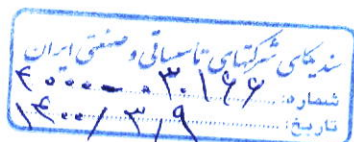 سندیکای شرکتهای تاسیساتی و صنعتی ایران
شماره: ۴۰۰۰۰-۰۳۰۱۶۶
تاریخ: ۱۴۰۰/۳/۹